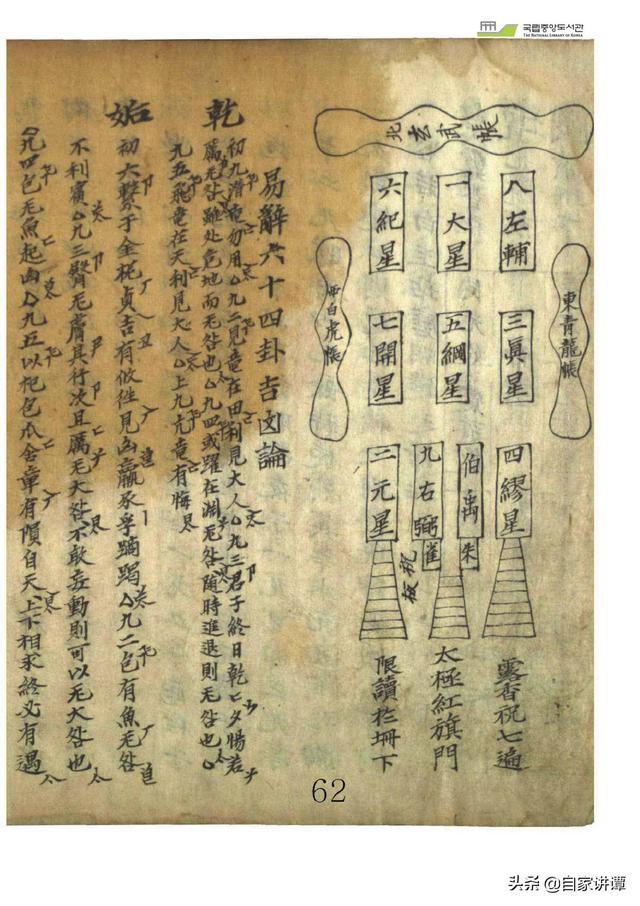 국립중앙도서관
THE NATIONAL LIBRARY OF KOREA
北玄武帳
八左輔
一大星
六紀星
東青龍帳
三眞星
五綱星
七開星
西白虎帳
四繆星
伯禹
朱
九右弼
雀
二元星
露香祝七遍
太極紅旗門
限讀於坍下
易辭六十四卦吉凶論
乾
初九潛竜勿用△九二見竜在田利見大人△九三君子終日乾〻夕惕若
厲无咎雖处危地而无咎也△九四或躍在渊无咎随時進退則无咎也△
九五飛竜在天利見大人△上九亢竜有悔
姤
初六繫于金柅貞吉有攸徃見凶羸豕孚蹢躅△九二包有魚无咎
不利賓△九三臀无膚其行次且厲无大咎不敢妄動則可以无大咎也
△九四包无魚起凶△九五以杞包瓜含章有隕自天上下相求終必有遇
62
头条 @自家讲谭